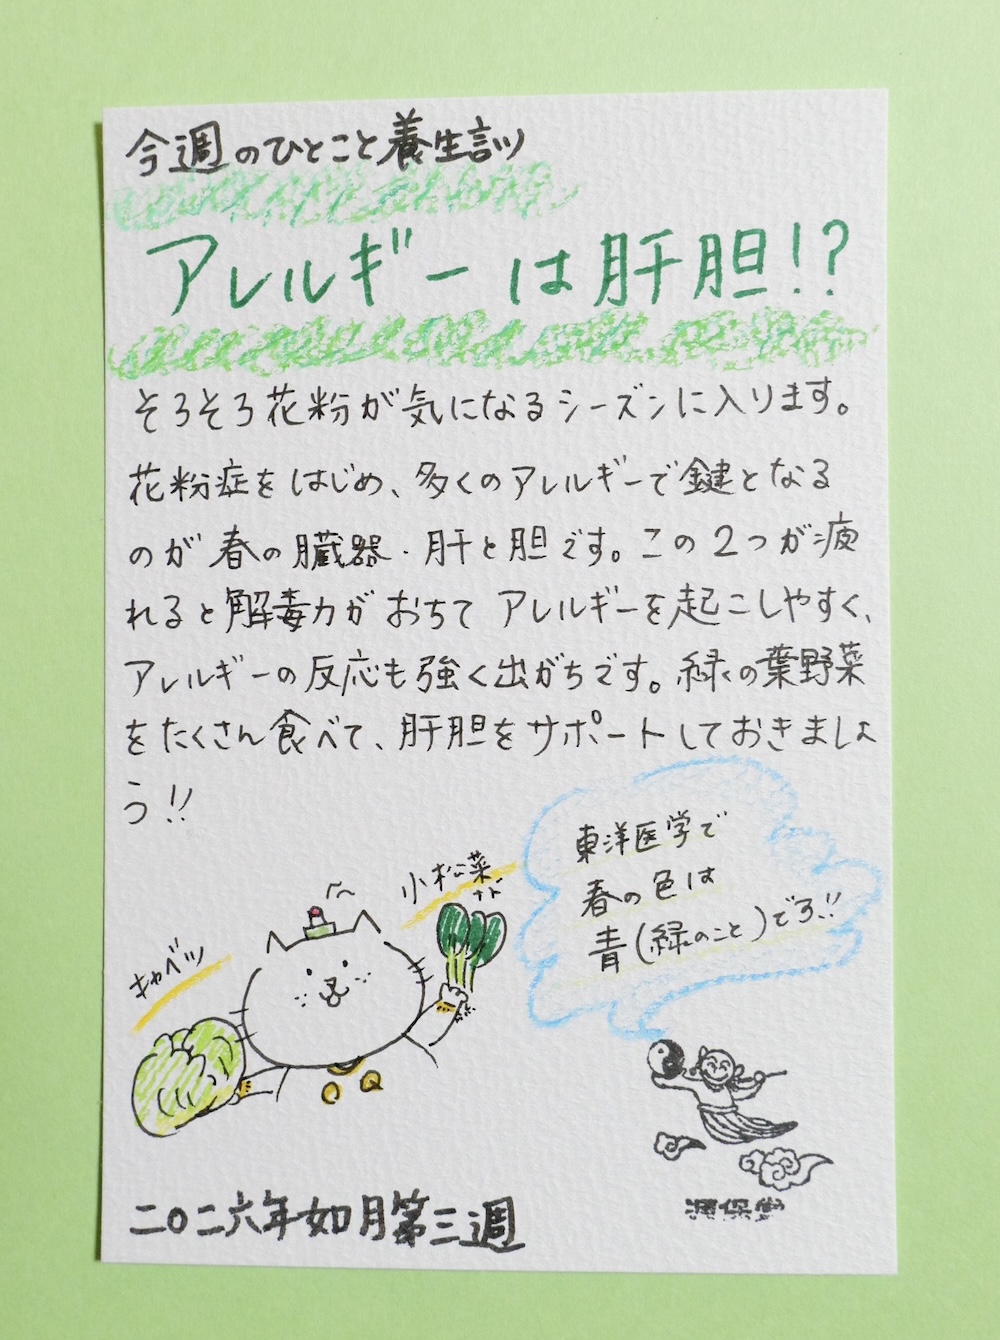 今週のひとこと養生訓
アレルギーは肝胆!?
そろそろ花粉が気になるシーズンに入ります。
花粉症をはじめ、多くのアレルギーで鍵となる
のが春の臓器・肝と胆です。この2つが疲
れると解毒力がおちてアレルギーを起こしやすく、
アレルギーの反応も強く出がちです。緑の葉野菜
をたくさん食べて、肝胆をサポートしておきましょ
う!!
東洋医学で
春の色は
青(緑のこと)でス!!
小松菜
など
キャベツ
源保堂
二〇二六年如月第三週